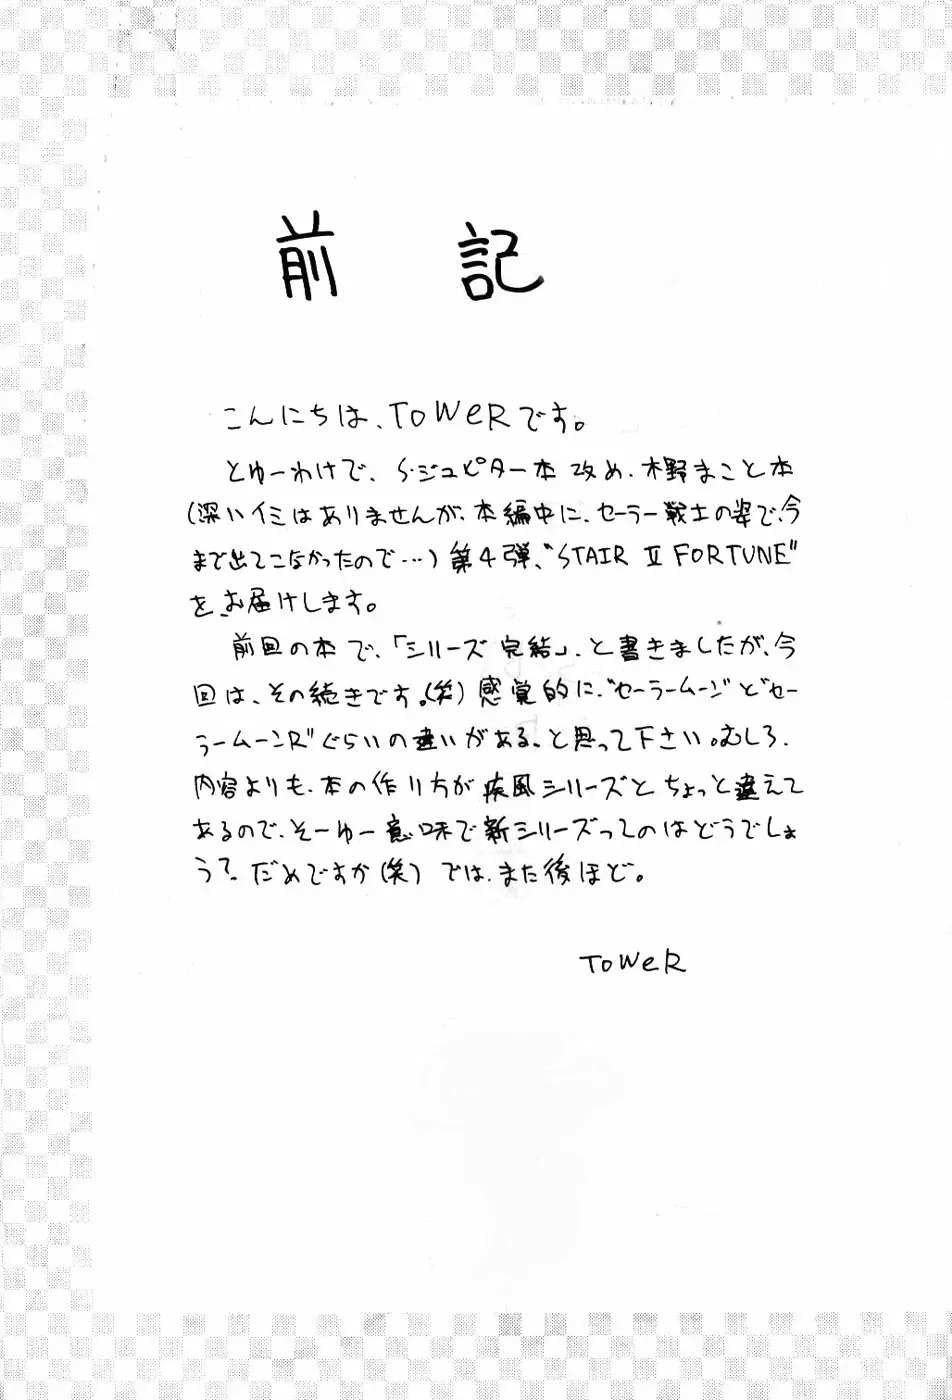 前記
こんにちは、TOWeRです。
とゆーわけで、S・ジュピター本改め、木野まこと本
(深いイミはありませんが、本編中に、セーラー戦士の姿で、今
まで出てこなかったので…)第4弾、“STAIR Ⅱ FORTUNE”
を、お届けします。
前回の本で、「シリーズ完結」、と書きましたが、今
回は、その続きです。(笑)感覚的に、“セーラームーン”と“セー
ラームーンR”ぐらいの違いがある、と思って下さい。むしろ、
内容よりも、本の作り方が疾風シリーズとちょっと違えて
あるので、そーゆー意味で新シリーズってのはどうでしょ
う?。だめですか(笑)では、また後ほど。
ToWeR